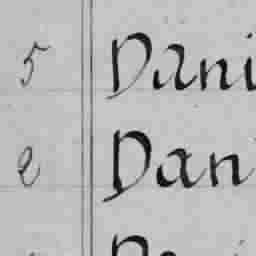 5 Dani
e Dan